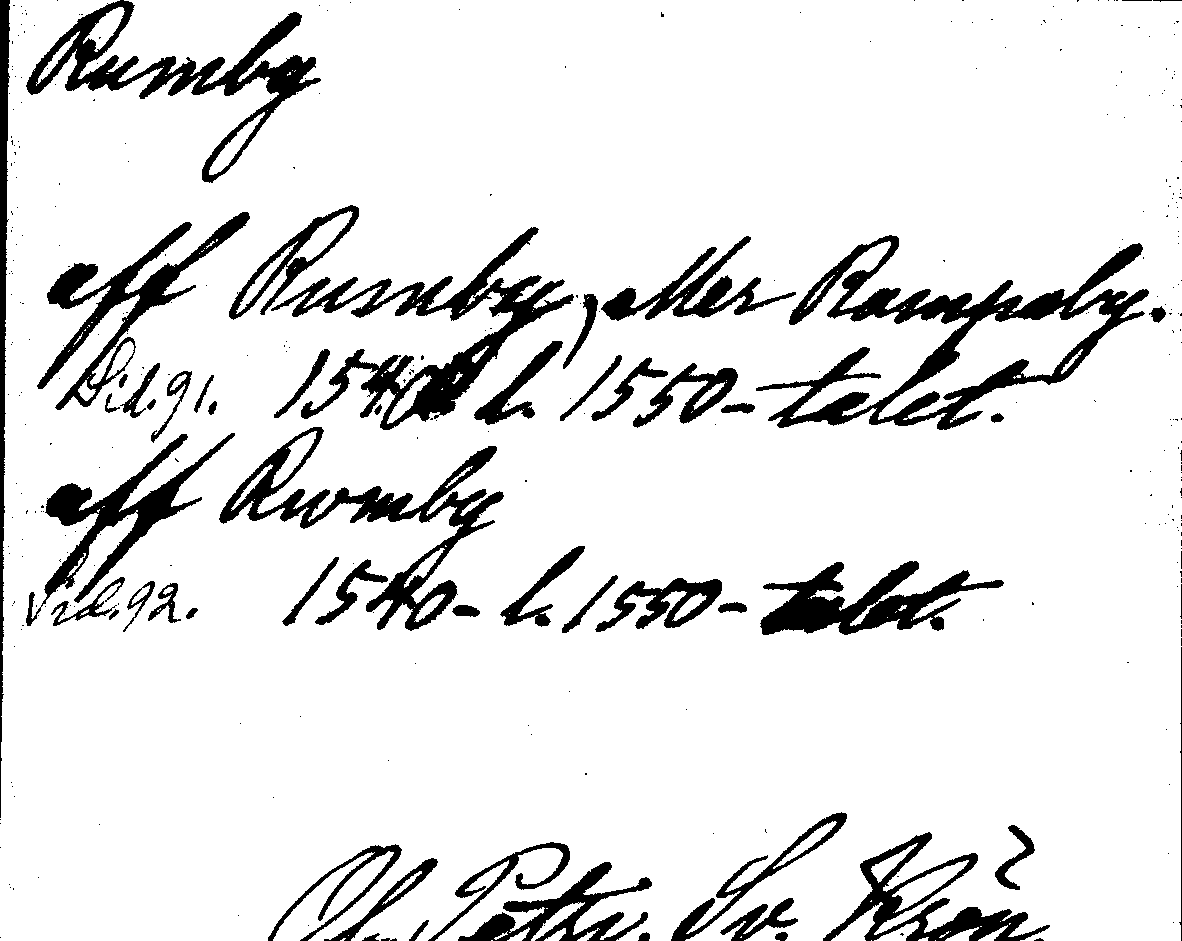 Rumby
aff Rumby, eller Rampæby.
Sid. 91. 1540 l. 1550-talet.
aff Rwmby
Sid. 92. 1540- l. 1550-talet.
Petri. Sv. Krön